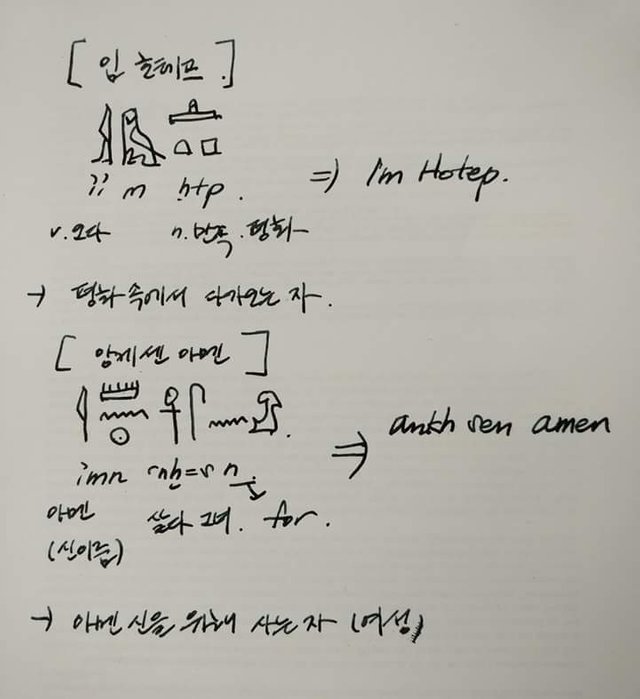 [ 임 호테프 ]
ii m ḥtp. ⇒ Im Hotep.
v. 오다 n. 만족. 평화
→ 평화 속에서 다가오는 자.
[ 앙케센 아멘 ]
imn ꜥnḫ=s n ⇒ ankh sen amen
아멘 살다 그녀. for.
(신이름)
→ 아멘 신을 위해 사는 자 (여성)